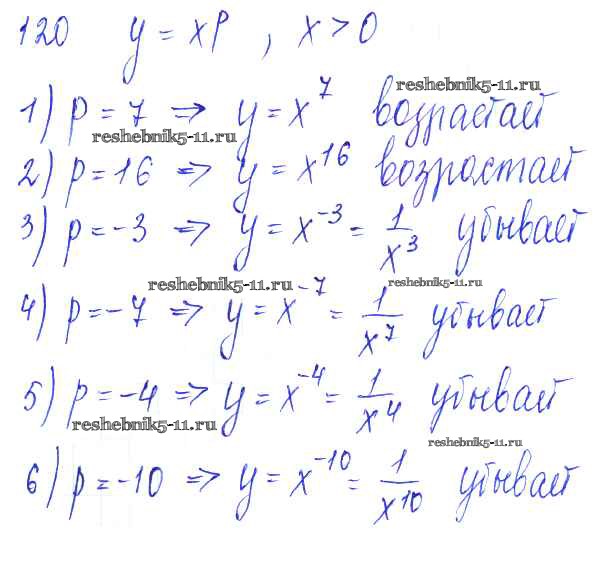 120 y = x^p , x > 0
reshebnik5-11.ru
1) p = 7 => y = x^7 возрастает
reshebnik5-11.ru
2) p = 16 => y = x^16 возрастает
3) p = -3 => y = x^-3 = 1/x^3 убывает
reshebnik5-11.ru reshebnik5-11.ru
4) p = -7 => y = x^-7 = 1/x^7 убывает
5) p = -4 => y = x^-4 = 1/x^4 убывает
reshebnik5-11.ru
reshebnik5-11.ru
6) p = -10 => y = x^-10 = 1/x^10 убывает